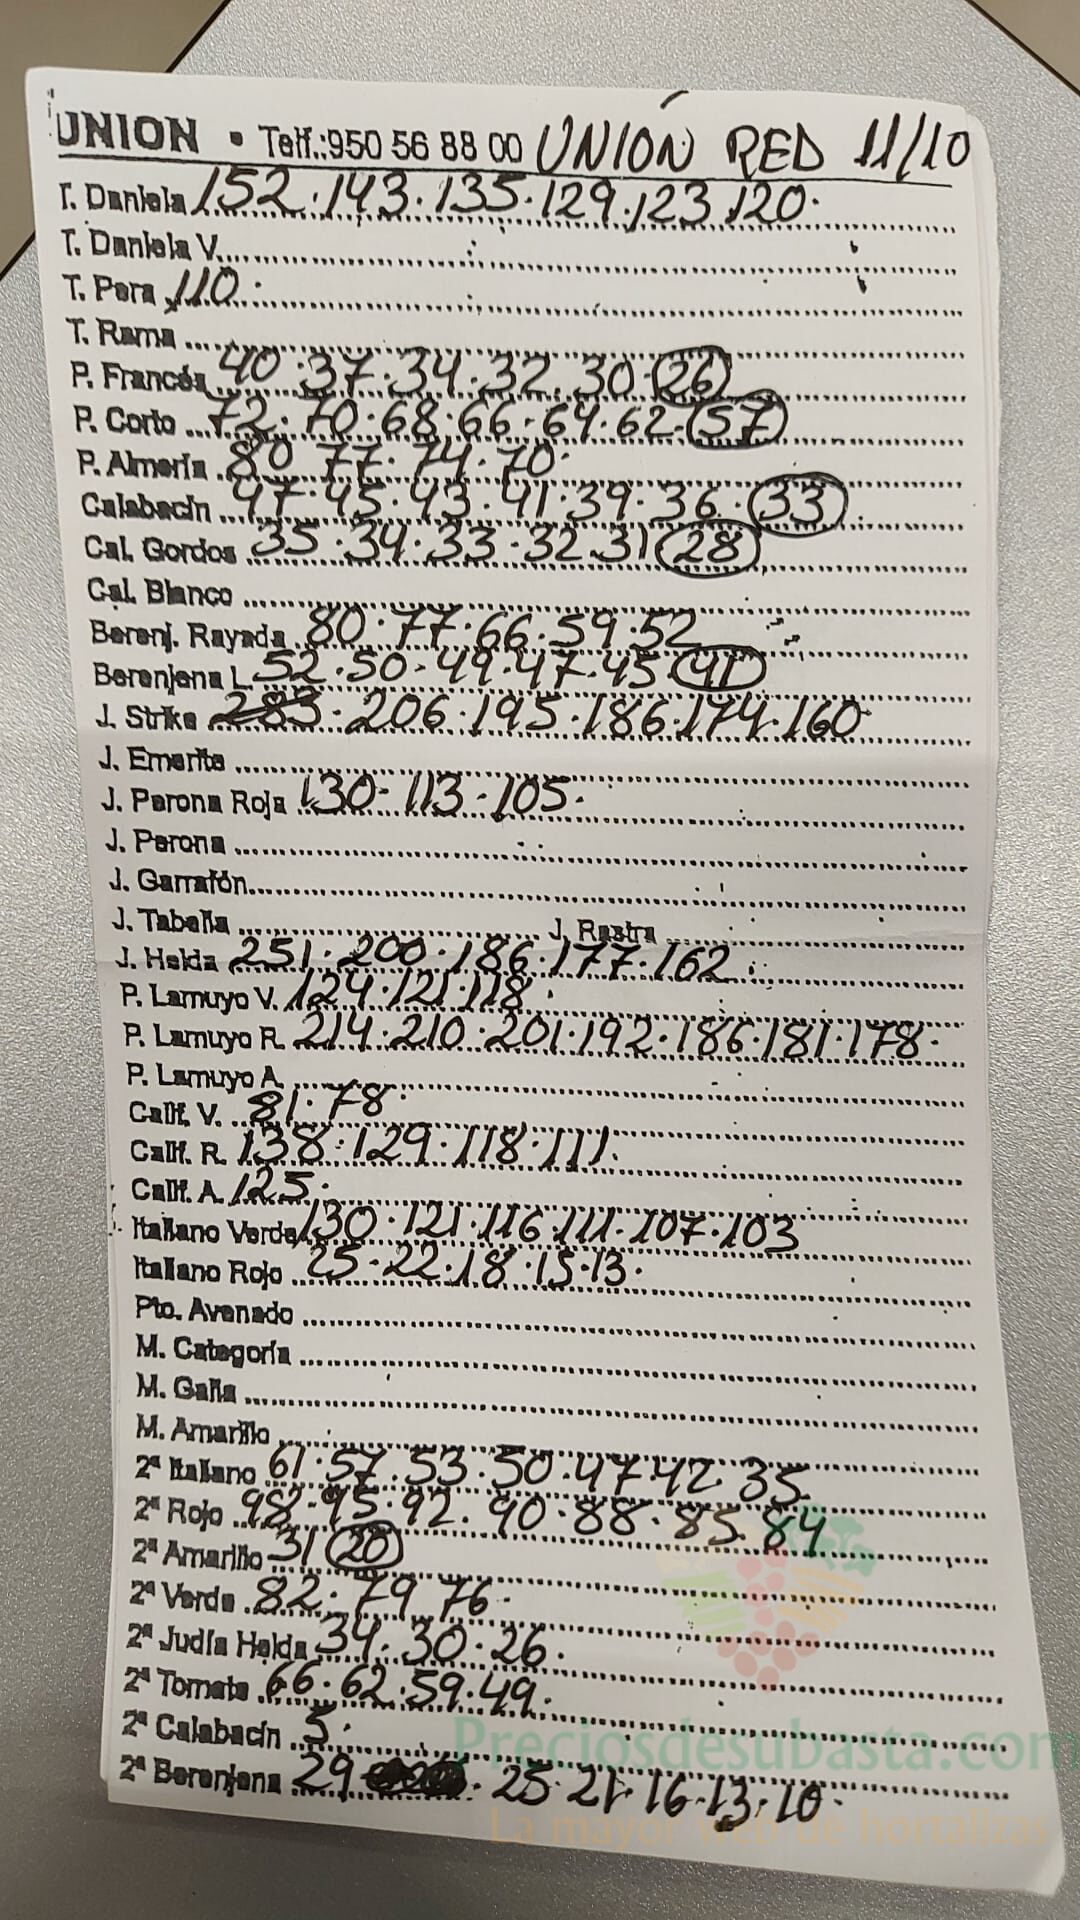 UNION • Telf.:950 56 88 00 UNIÓN RED 11/10
T. Daniela 152·143·135·129·123 120·
T. Daniela V.
T. Pera 110·
T. Rama
P. Francés 40·37·34·32·30·26
P. Corto 72·70·68·66·64·62·57
P. Almería 80 77·74·70·
Calabacín 47·45·43·41·39·36·33
Cal. Gordos 35·34·33·32·31 28
Cal. Blanco
Berenj. Rayada 80·77·66·59·52
Berenjena L. 52·50·49·47·45 41
J. Strike 283·206·195·186·174·160
J. Emerite
J. Perona Roja 130·113·105·
J. Perona
J. Garrafón
J. Tabella J. Rastra
J. Helda 251·200·186·177·162
P. Lamuyo V. 124·121·118
P. Lamuyo R. 214·210·201·192·186·181·178·
P. Lamuyo A.
Calif. V. 81·78·
Calif. R. 138·129·118·111·
Calif. A. 125·
Italiano Verde 130·121·116·111·107·103
Italiano Rojo 25·22·18·15·13·
Pto. Avenado
M. Categoría
M. Galia
M. Amarillo
2ª Italiano 61·57·53·50·47 42·35
2ª Rojo 98·95·92·90·88·85·84
2ª Amarillo 31 20
2ª Verde 82·79 76·
2ª Judía Helda 34·30·26·
2ª Tomate 66·62·59·49·
2ª Calabacín 5·
2ª Berenjena 29 · 25·21·16·13·10·
Preciosdesubasta.com
La mayor web de hortalizas